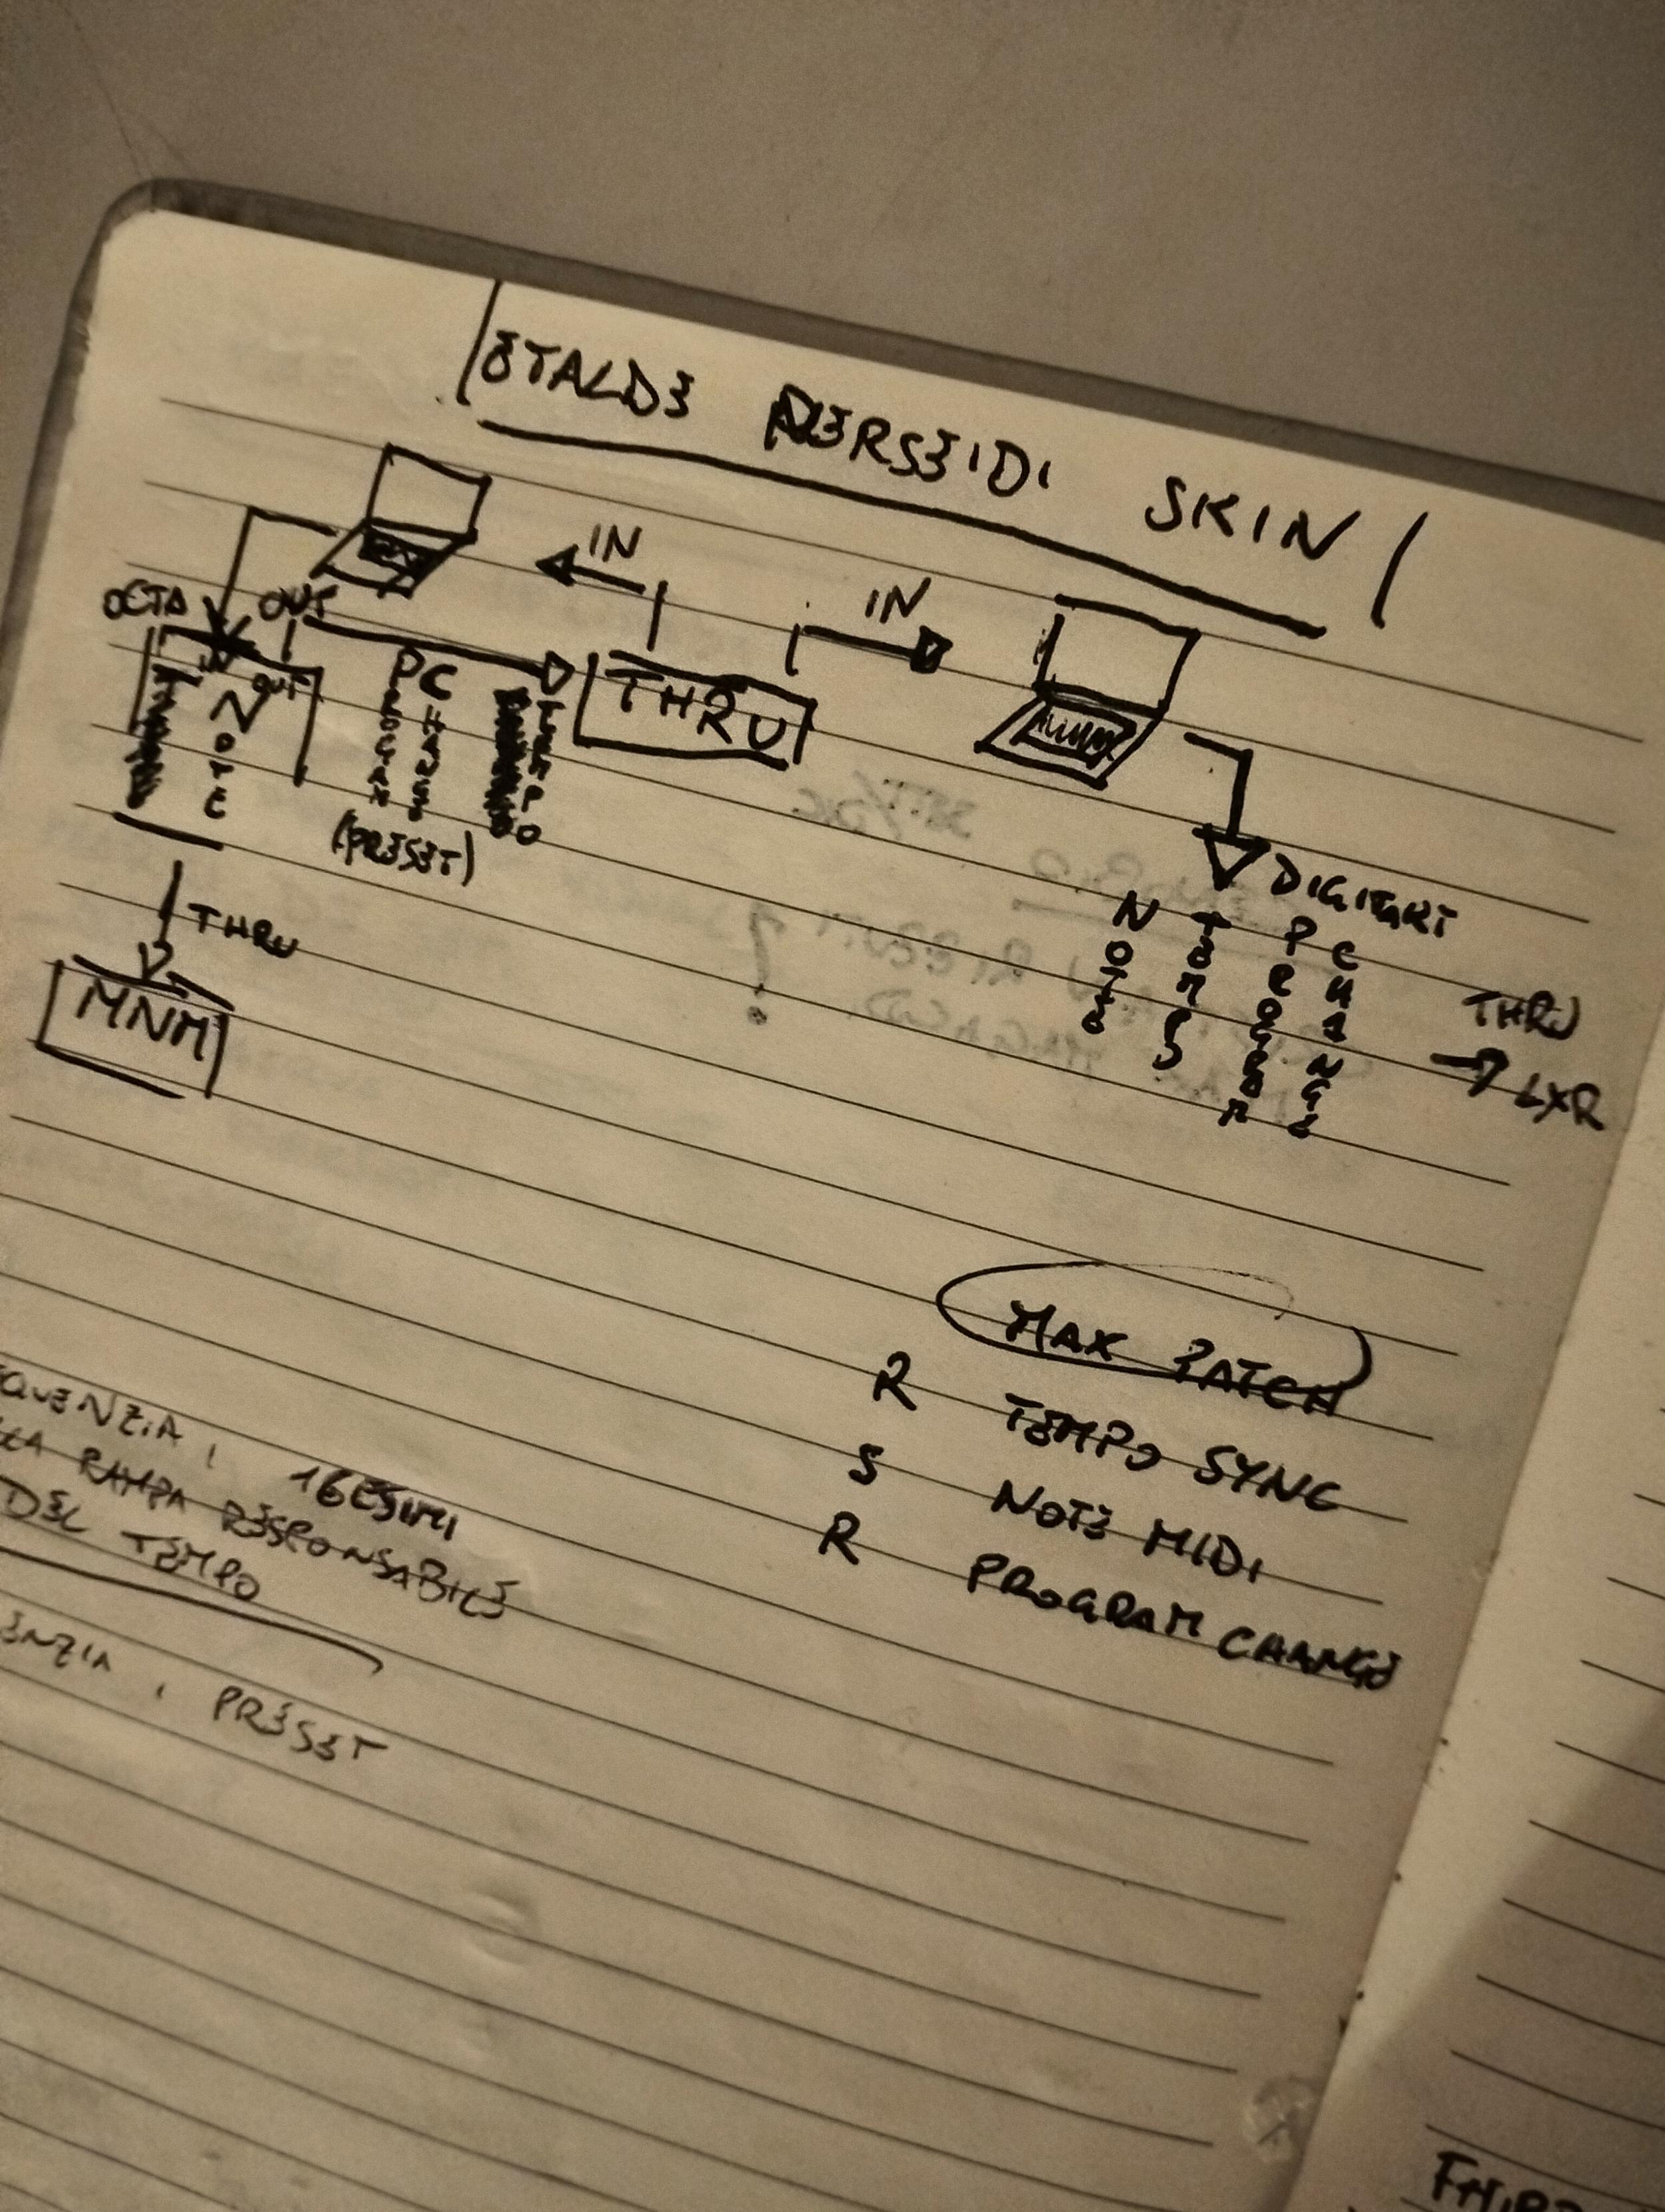 STALDE PERSEIDI SKIN
IN
IN
OCTA OUT
IN OUT
THRU
NOTE
PROGRAM CHANGE
TEMPO
(PRESET)
THRU
MNM
DIGITAKT
NOTE
TEMPO
PROGRAM
CHANGE
THRU
→ LXR
MAX PATCH
R TEMPO SYNC
S NOTE MIDI
R PROGRAM CHANGE
QUENZIA, 16ESIMI
RAMPA RESPONSABILE
DEL TEMPO
ENZIA, PRESET